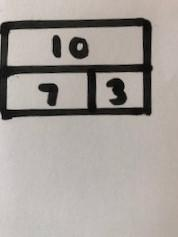 10
7 3